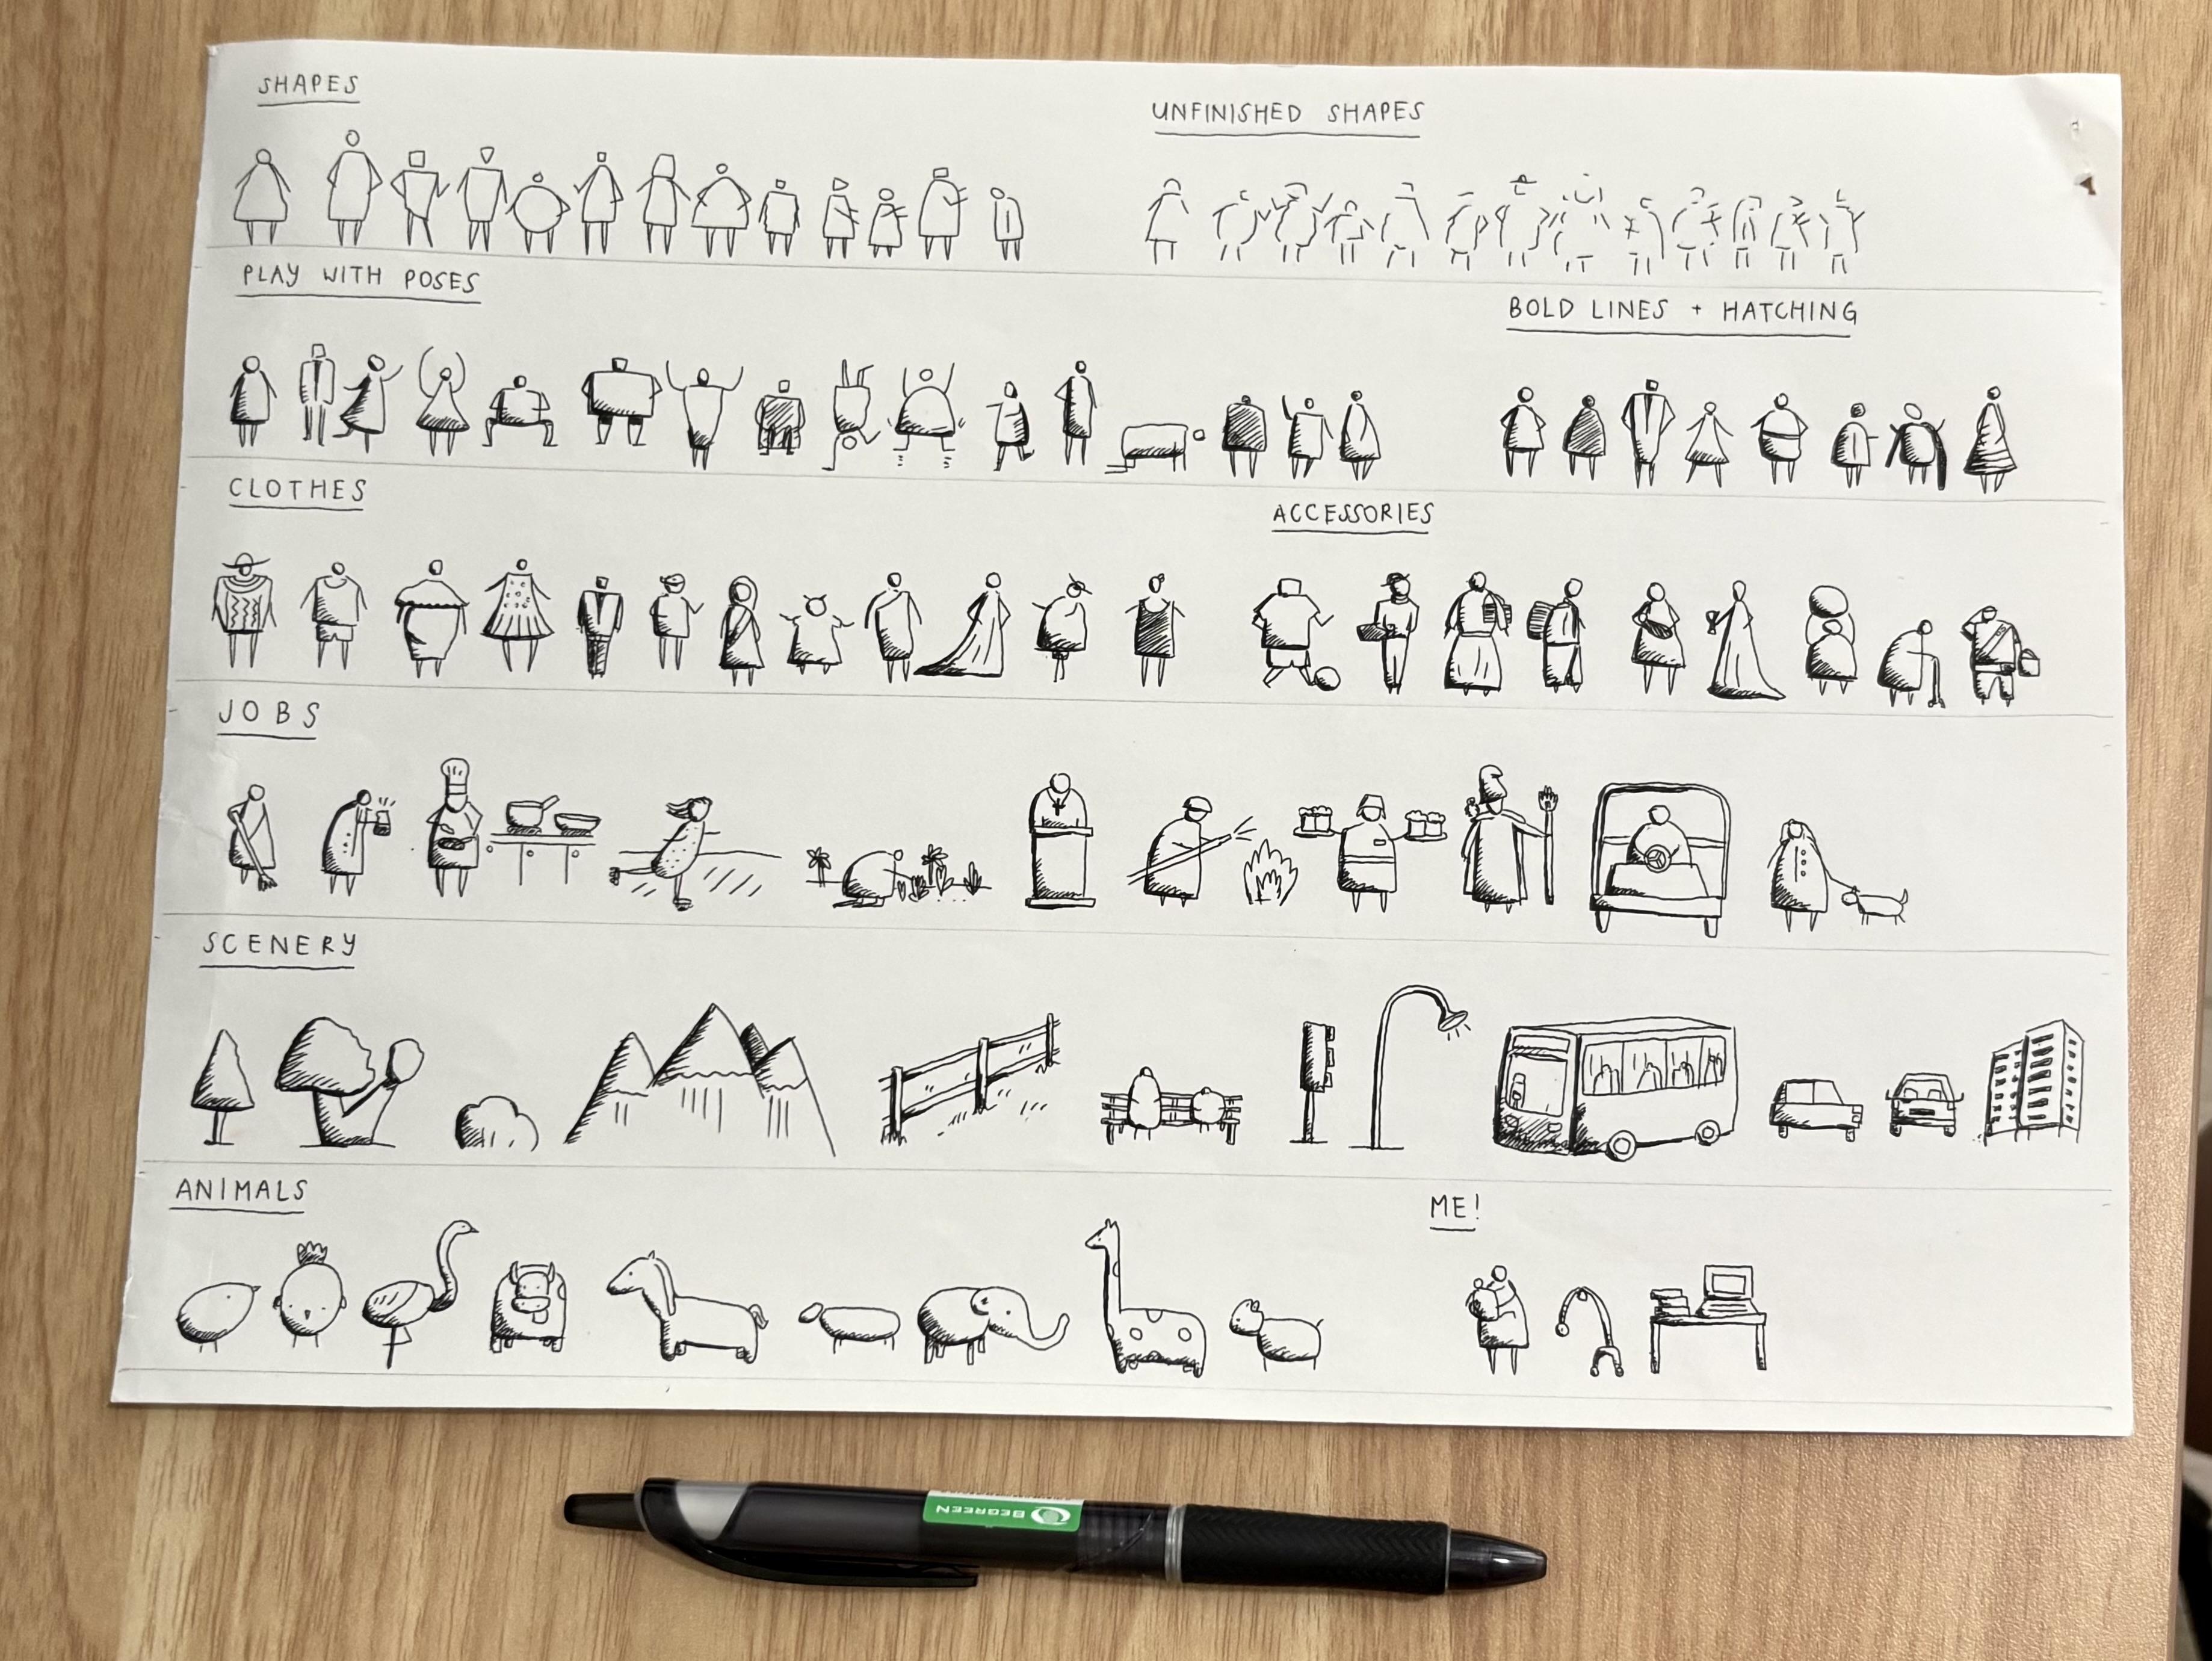 SHAPES
UNFINISHED SHAPES
PLAY WITH POSES
BOLD LINES + HATCHING
CLOTHES
ACCESSORIES
JOBS
SCENERY
ANIMALS
ME!
BEGREEN